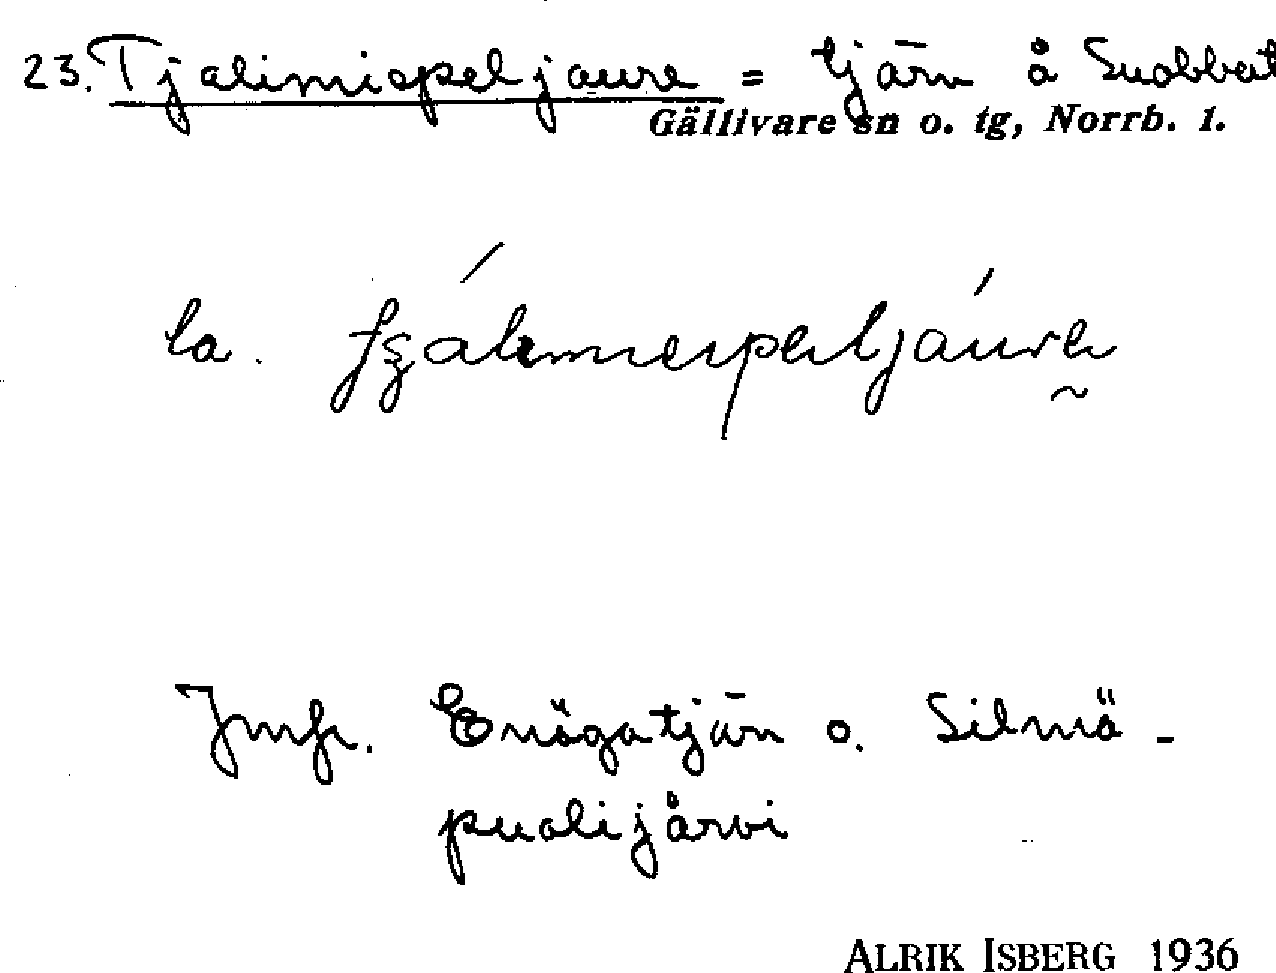 23. Tjalimiopeljaure = tjärn å Suobbat
Gällivare sn o. tg, Norrb. l.
la.
Jmfr. Enögatjän o. Silmä-
puolijärvi
ALRIK ISBERG 1936